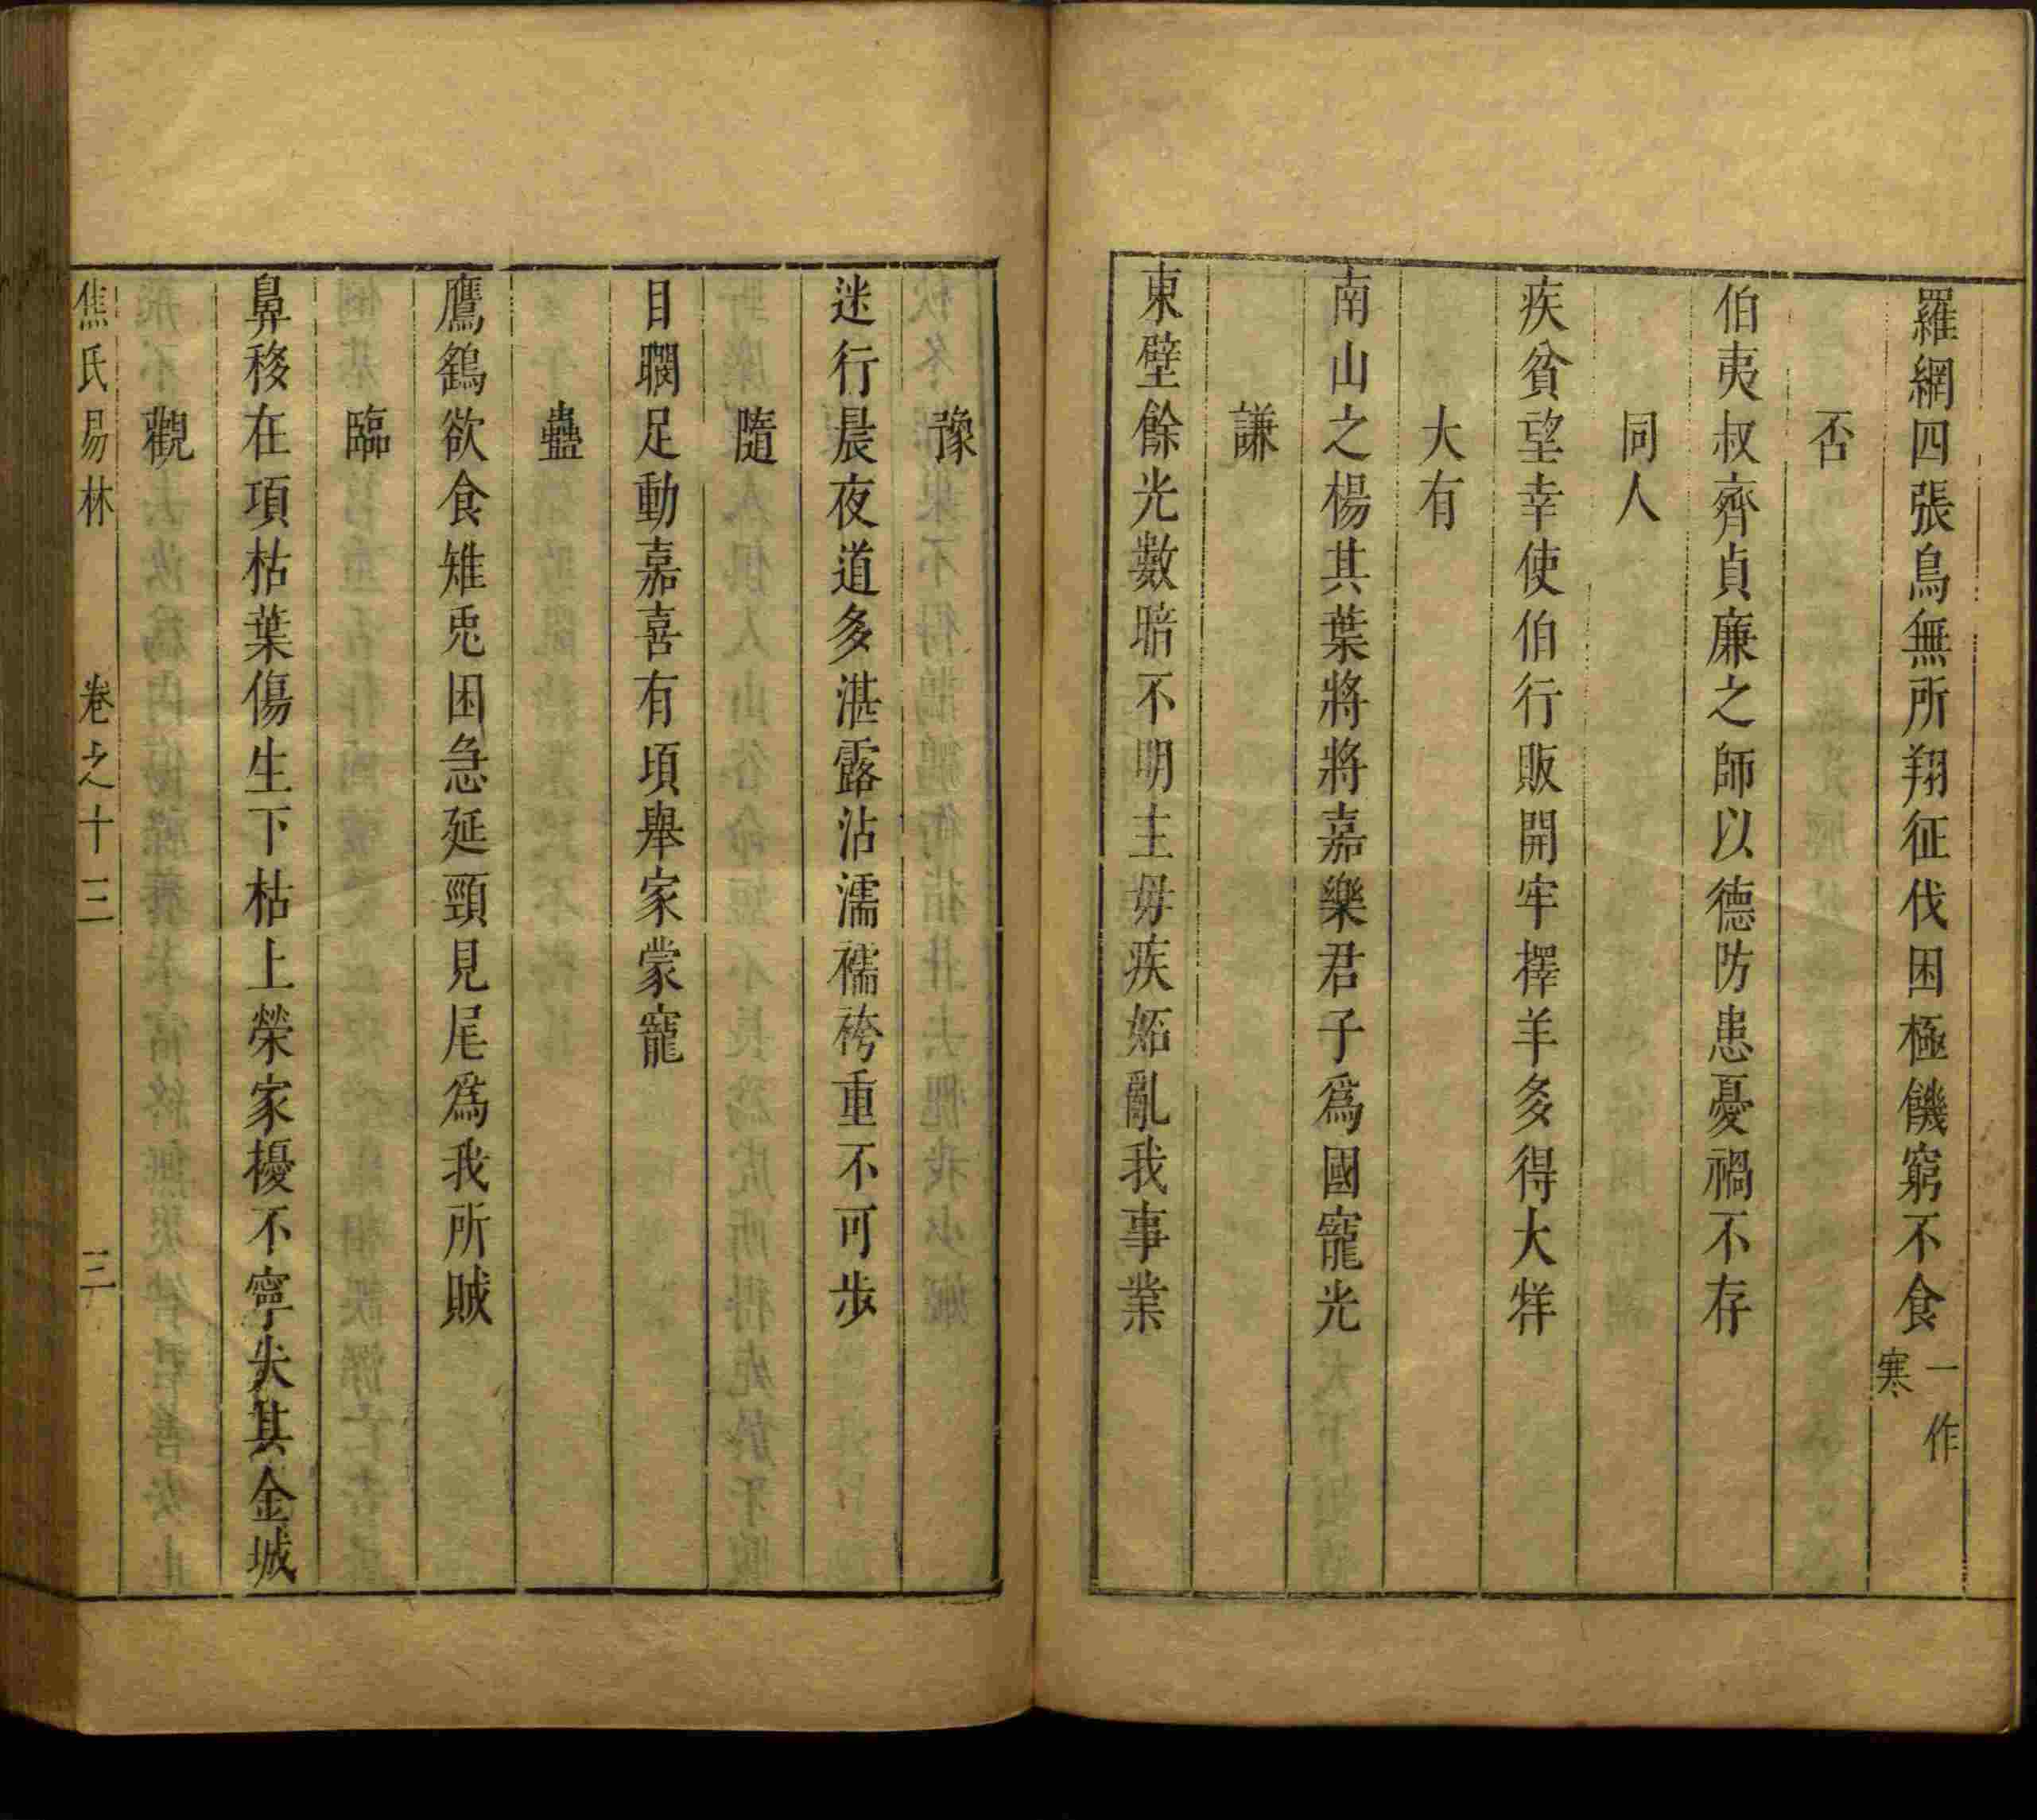 羅網四張鳥無所翔征伐困極饑窮不食一作寒
否
伯夷叔齊貞廉之師以德防患憂禍不存
同人
疾貧望幸使伯行販開牢擇羊多得大牂
大有
南山之楊其葉將將嘉樂君子為國寵光
謙
東壁餘光數暗不明主毋疾妬亂我事業
豫
迷行晨夜道多湛露沾濡襦袴重不可步
隨
目瞤足動嘉喜有頃舉家蒙寵
蠱
鷹鶴欲食雉兎困急延頸見尾為我所賊
臨
鼻移在項枯葉傷生下枯上榮家擾不寧失其金城
觀
焦氏易林 卷之十三 三